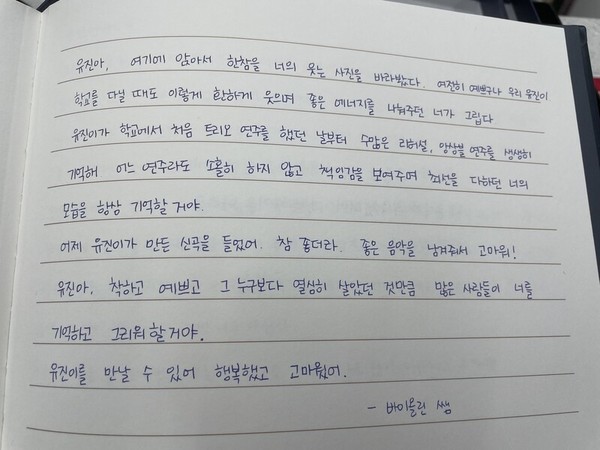 유진아, 여기에 앉아서 한참을 너의 웃는 사진을 바라봤다. 여전히 예쁘구나 우리 유진이
학교를 다닐 때도 이렇게 환하게 웃으며 좋은 에너지를 나눠주던 너가 그립다
유진이가 학교에서 처음 트리오 연주를 했던 날부터 수많은 리허설, 앙상블 연주를 생생히
기억해 어느 연주라도 소홀히 하지 않고 책임감을 보여주며 최선을 다하던 너의
모습을 항상 기억할 거야.
어제 유진이가 만든 신곡을 들었어. 참 좋더라. 좋은 음악을 남겨줘서 고마워!
유진아, 착하고 예쁘고 그 누구보다 열심히 살았던 것만큼 많은 사람들이 너를
기억하고 그리워 할 거야.
유진이를 만날 수 있어 행복했고 고마웠어.
- 바이올린 쌤